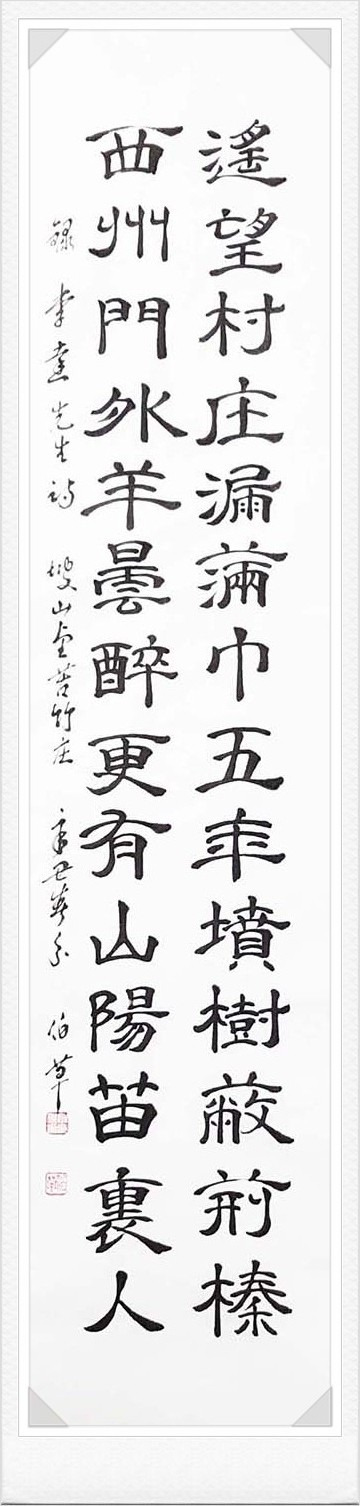 遙望村庄漏滿巾五年墳樹蔽荊榛
西州門外羊曇醉更有山陽苗裏人
錄李達先生詩 坡山堂苦竹庄 辛丑暮冬 伯草